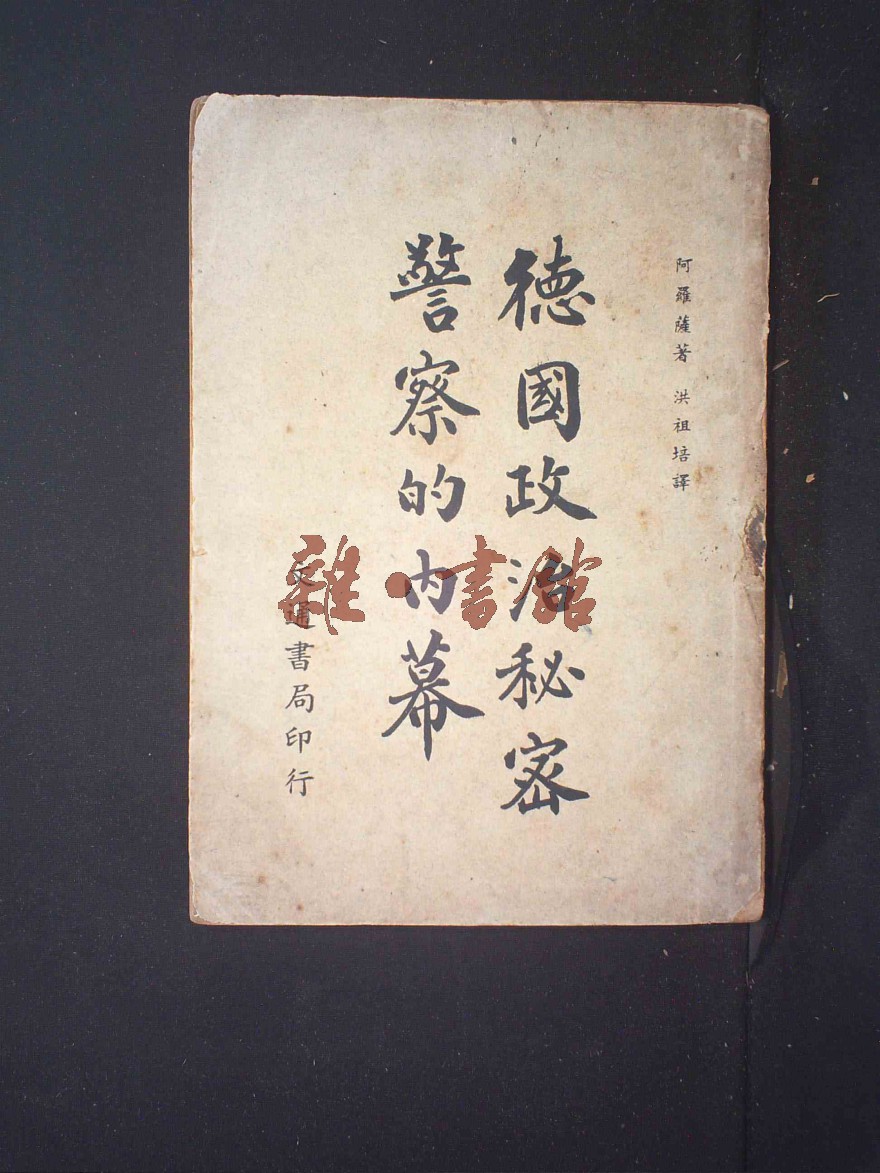 阿羅薩著 洪祖培譯
德國政治秘密
警察的內幕
交通書局印行
雜·書館